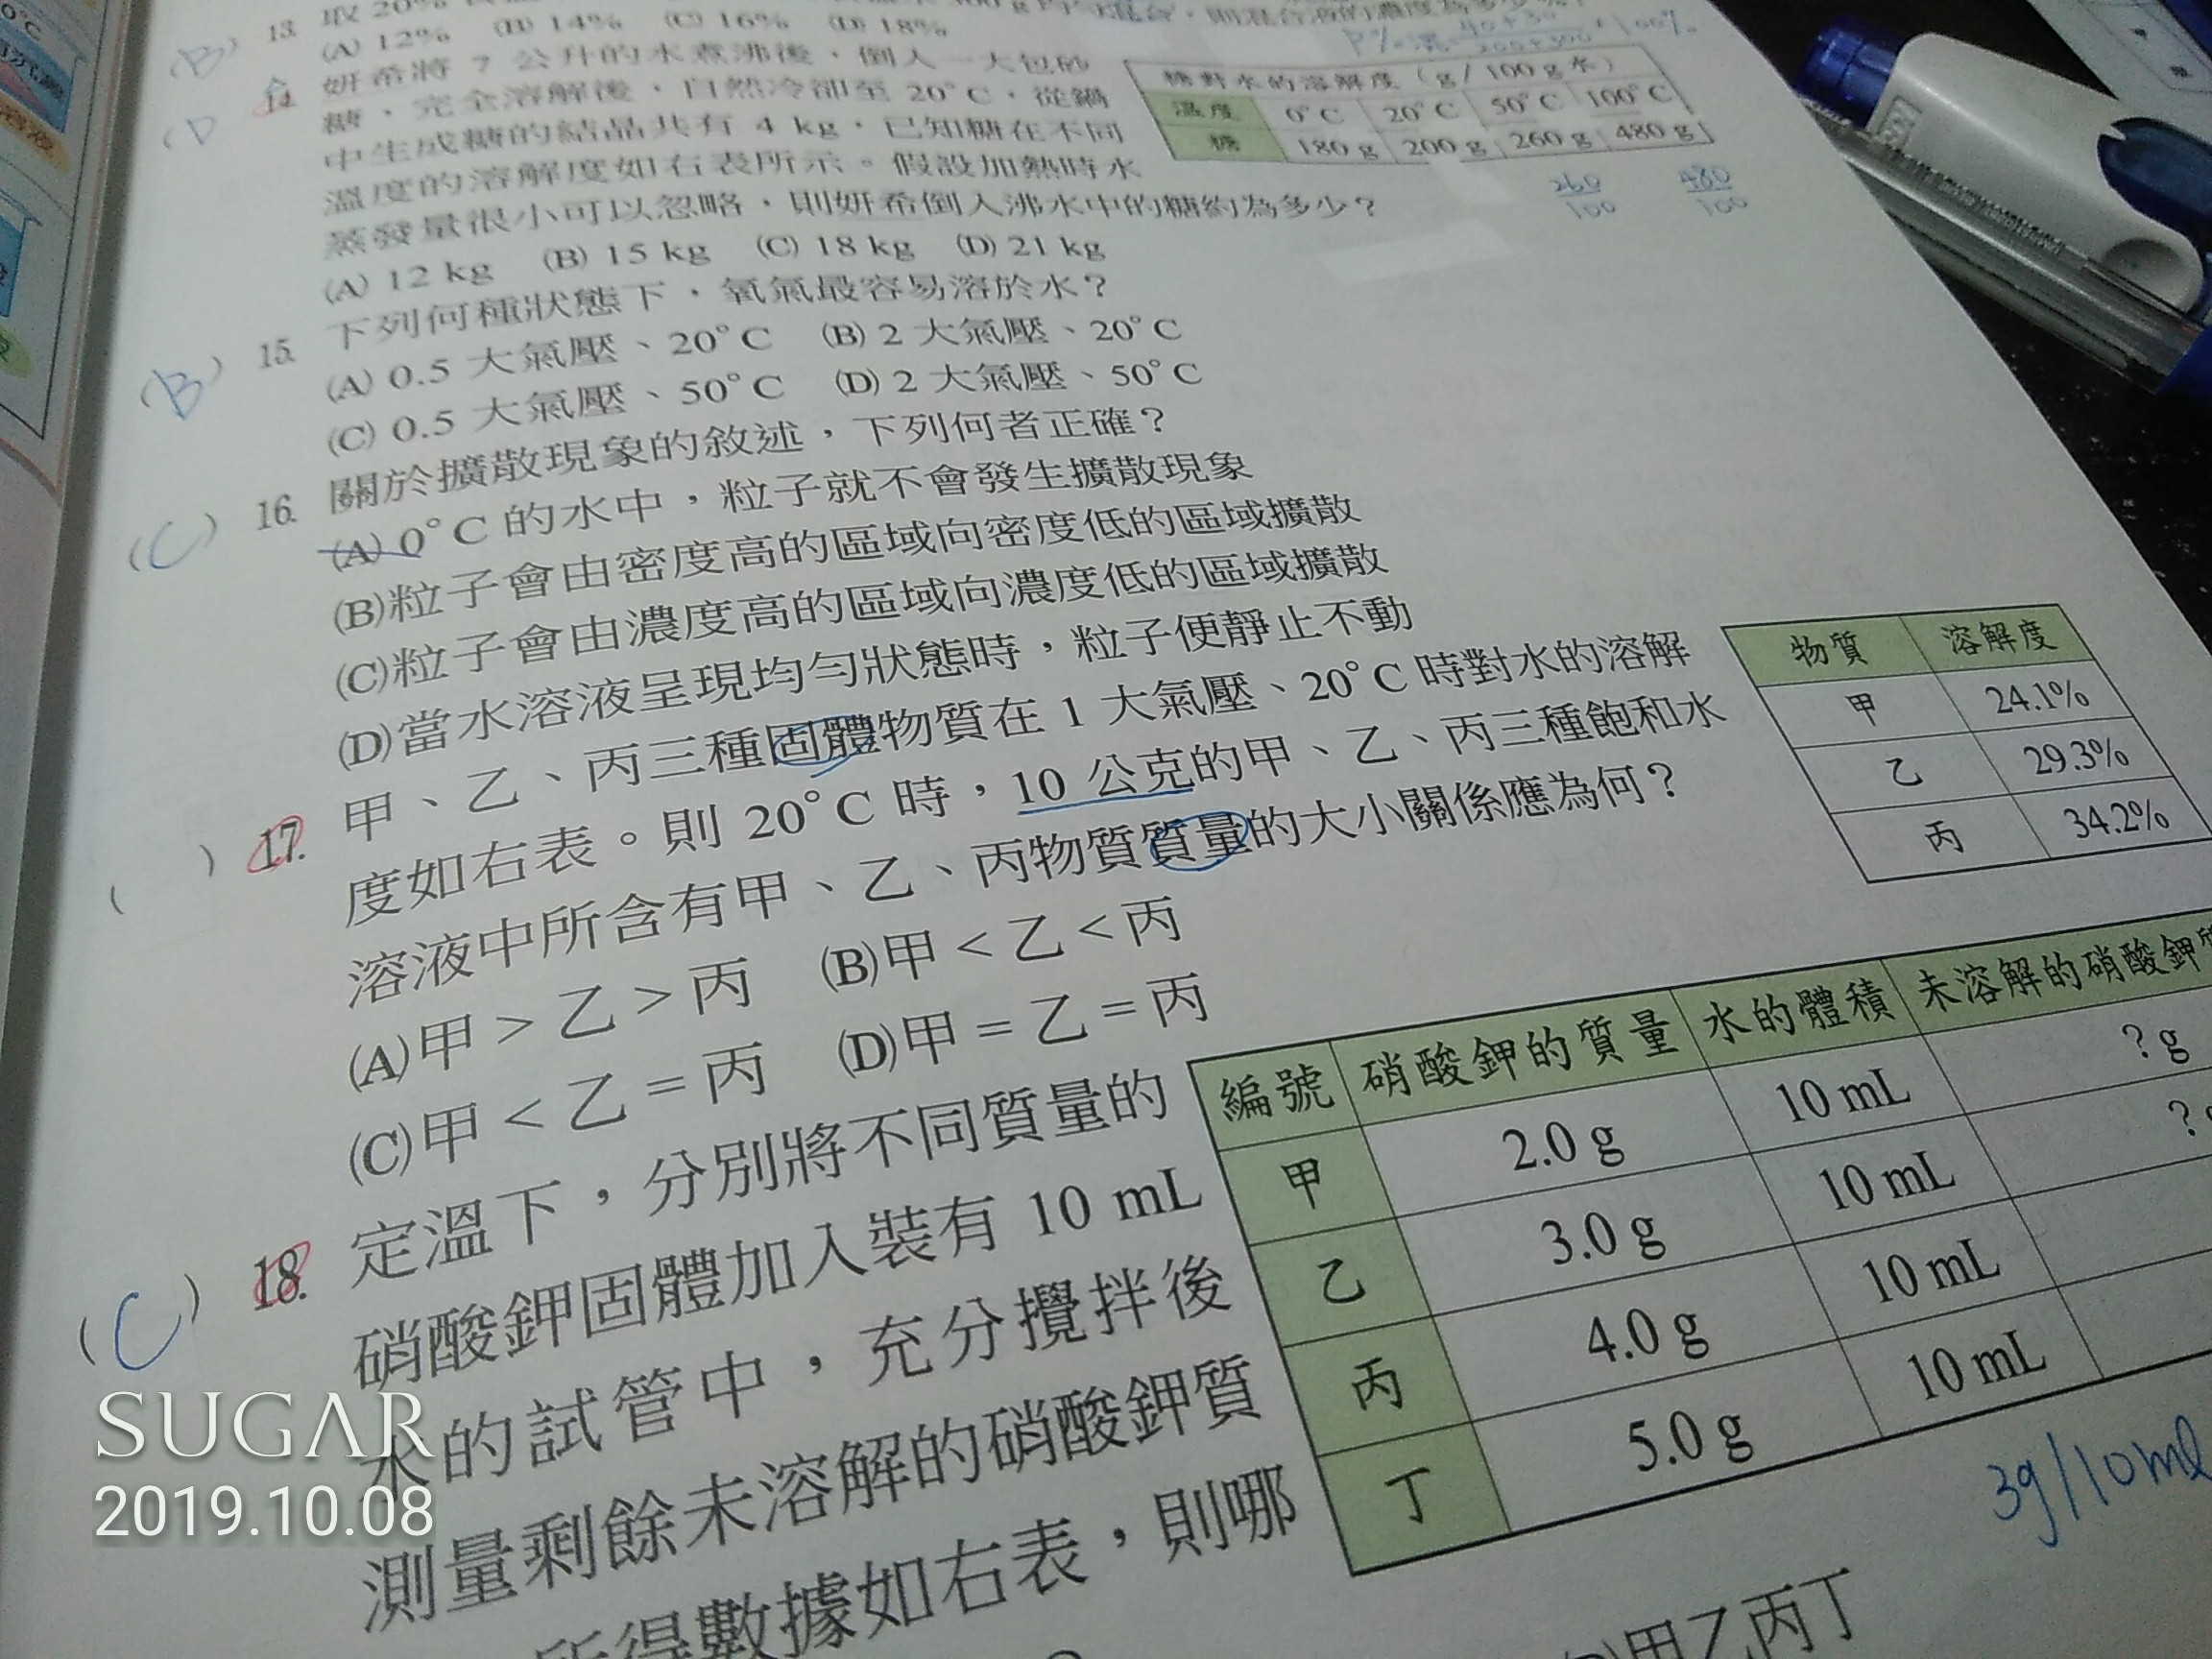 13. 取 20%
(A) 12% (B) 14% (C) 16% (D) 18%
(B)
14. 妍希將 7 公升的水煮沸後，倒入一大包砂
糖，完全溶解後，自然冷卻至 20°C，從鍋
中生成糖的結晶共有 4 kg，已知糖在不同
溫度的溶解度如右表所示。假設加熱時水
蒸發量很小可以忽略，則妍希倒入沸水中的糖約為多少？
(A) 12 kg (B) 15 kg (C) 18 kg (D) 21 kg
糖對水的溶解度（g／100 g 水）
溫度 0°C 20°C 50°C 100°C
糖 180 g 200 g 260 g 480 g
260/100 480/100
(B) 15. 下列何種狀態下，氧氣最容易溶於水？
(A) 0.5 大氣壓、20°C (B) 2 大氣壓、20°C
(C) 0.5 大氣壓、50°C (D) 2 大氣壓、50°C
(C) 16. 關於擴散現象的敘述，下列何者正確？
(A) 0°C 的水中，粒子就不會發生擴散現象
(B)粒子會由密度高的區域向密度低的區域擴散
(C)粒子會由濃度高的區域向濃度低的區域擴散
(D)當水溶液呈現均勻狀態時，粒子便靜止不動
( ) 17. 甲、乙、丙三種固體物質在 1 大氣壓、20°C 時對水的溶解
度如右表。則 20°C 時，10 公克的甲、乙、丙三種飽和水
溶液中所含有甲、乙、丙物質質量的大小關係應為何？
(A)甲＞乙＞丙 (B)甲＜乙＜丙
(C)甲＜乙＝丙 (D)甲＝乙＝丙
物質 溶解度
甲 24.1%
乙 29.3%
丙 34.2%
(C) 18. 定溫下，分別將不同質量的
硝酸鉀固體加入裝有 10 mL
水的試管中，充分攪拌後
測量剩餘未溶解的硝酸鉀質
所得數據如右表，則哪
編號 硝酸鉀的質量 水的體積 未溶解的硝酸鉀
甲 2.0 g 10 mL ? g
乙 3.0 g 10 mL ?
丙 4.0 g 10 mL
丁 5.0 g 10 mL
3g/10ml
甲乙丙丁
SUGAR
2019.10.08